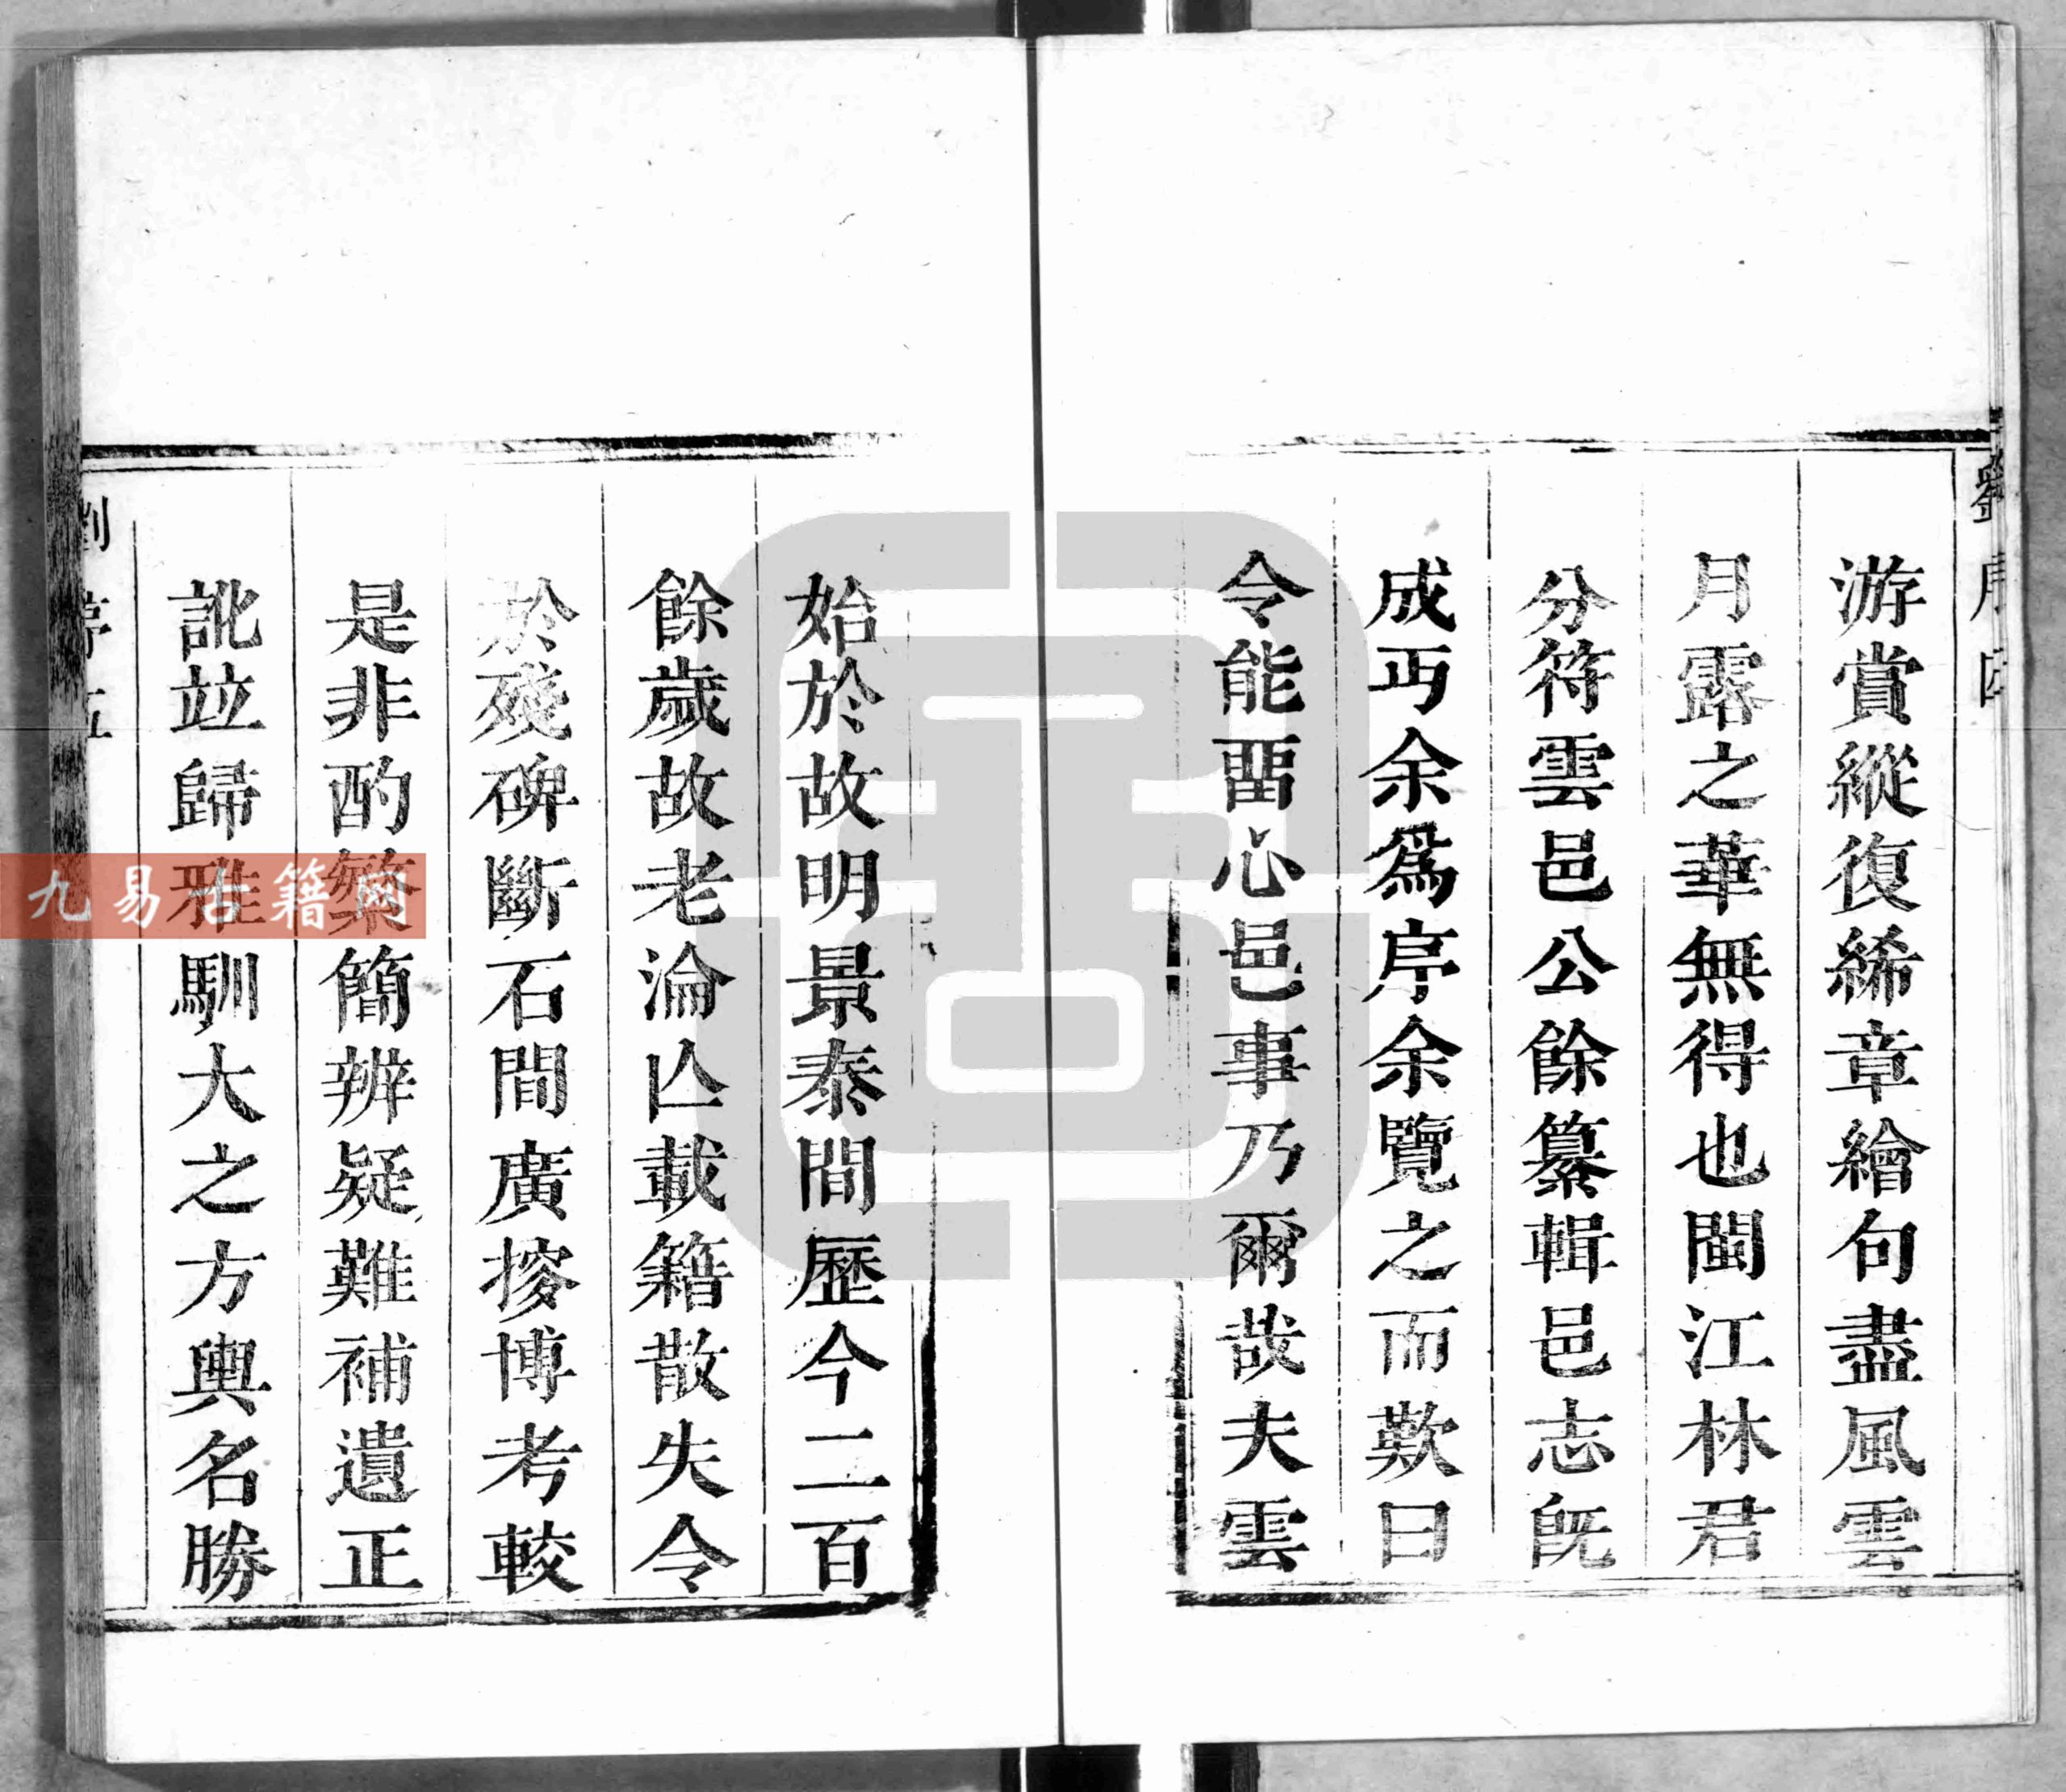 游賞縱復絺章繪句盡風雲
月露之華無得也閩江林君
分符雲邑公餘纂輯邑志旣
成丏余爲序余覽之而歎曰
令能畱心邑事乃爾哉夫雲
始於故明景泰間歷今二百
餘歲故老淪亾載籍散失令
於殘碑斷石間廣搜博考較
是非酌繁簡辨疑難補遺正
訛竝歸雅馴大之方輿名勝
九易古籍网